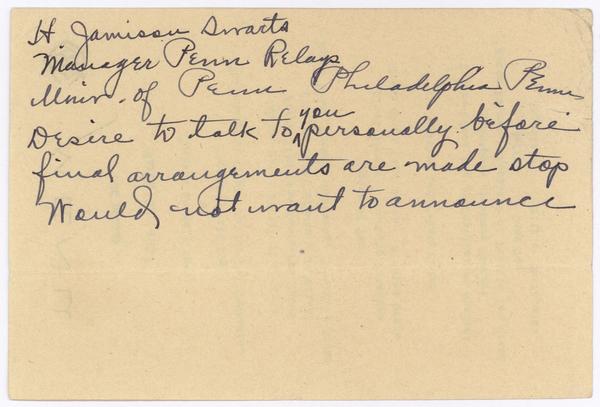 H Jamison Swarts
Manager Penn Relays
Univ. of Penn Philadelphia Penns
Desire to talk to you personally before
final arrangements are made stop
Would not want to announce